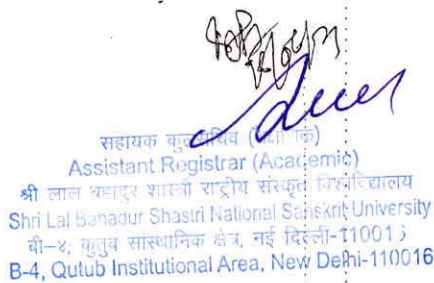 सहायक कुलसचिव (शैक्षणिक)
Assistant Registrar (Academic)
श्री लाल बहादुर शास्त्री राष्ट्रीय संस्कृत विश्वविद्यालय
Shri Lal Bahadur Shastri National Sanskrit University
बी-४, कुतुब सांस्थानिक क्षेत्र, नई दिल्ली-110016
B-4, Qutub Institutional Area, New Delhi-110016